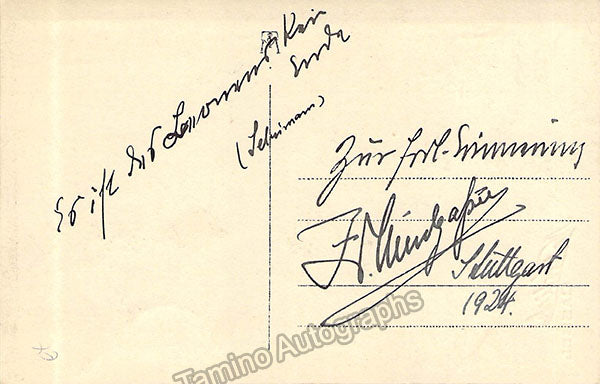 Es ist des Lernens Kein
Ende
(Schumann)
Zur frdl. Erinnerung
Fr. Windgassen
Stuttgart
1924.
Tamino Autographs